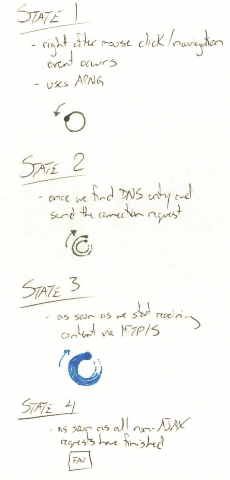 STATE 1
- right after mouse click/navigation
event occurs
- uses APNG
STATE 2
- once we find DNS entry and
send the connection request
STATE 3
- as soon as we start receiving
content via HTTP/S
STATE 4
- as soon as all non-AJAX
requests have finished
FAV